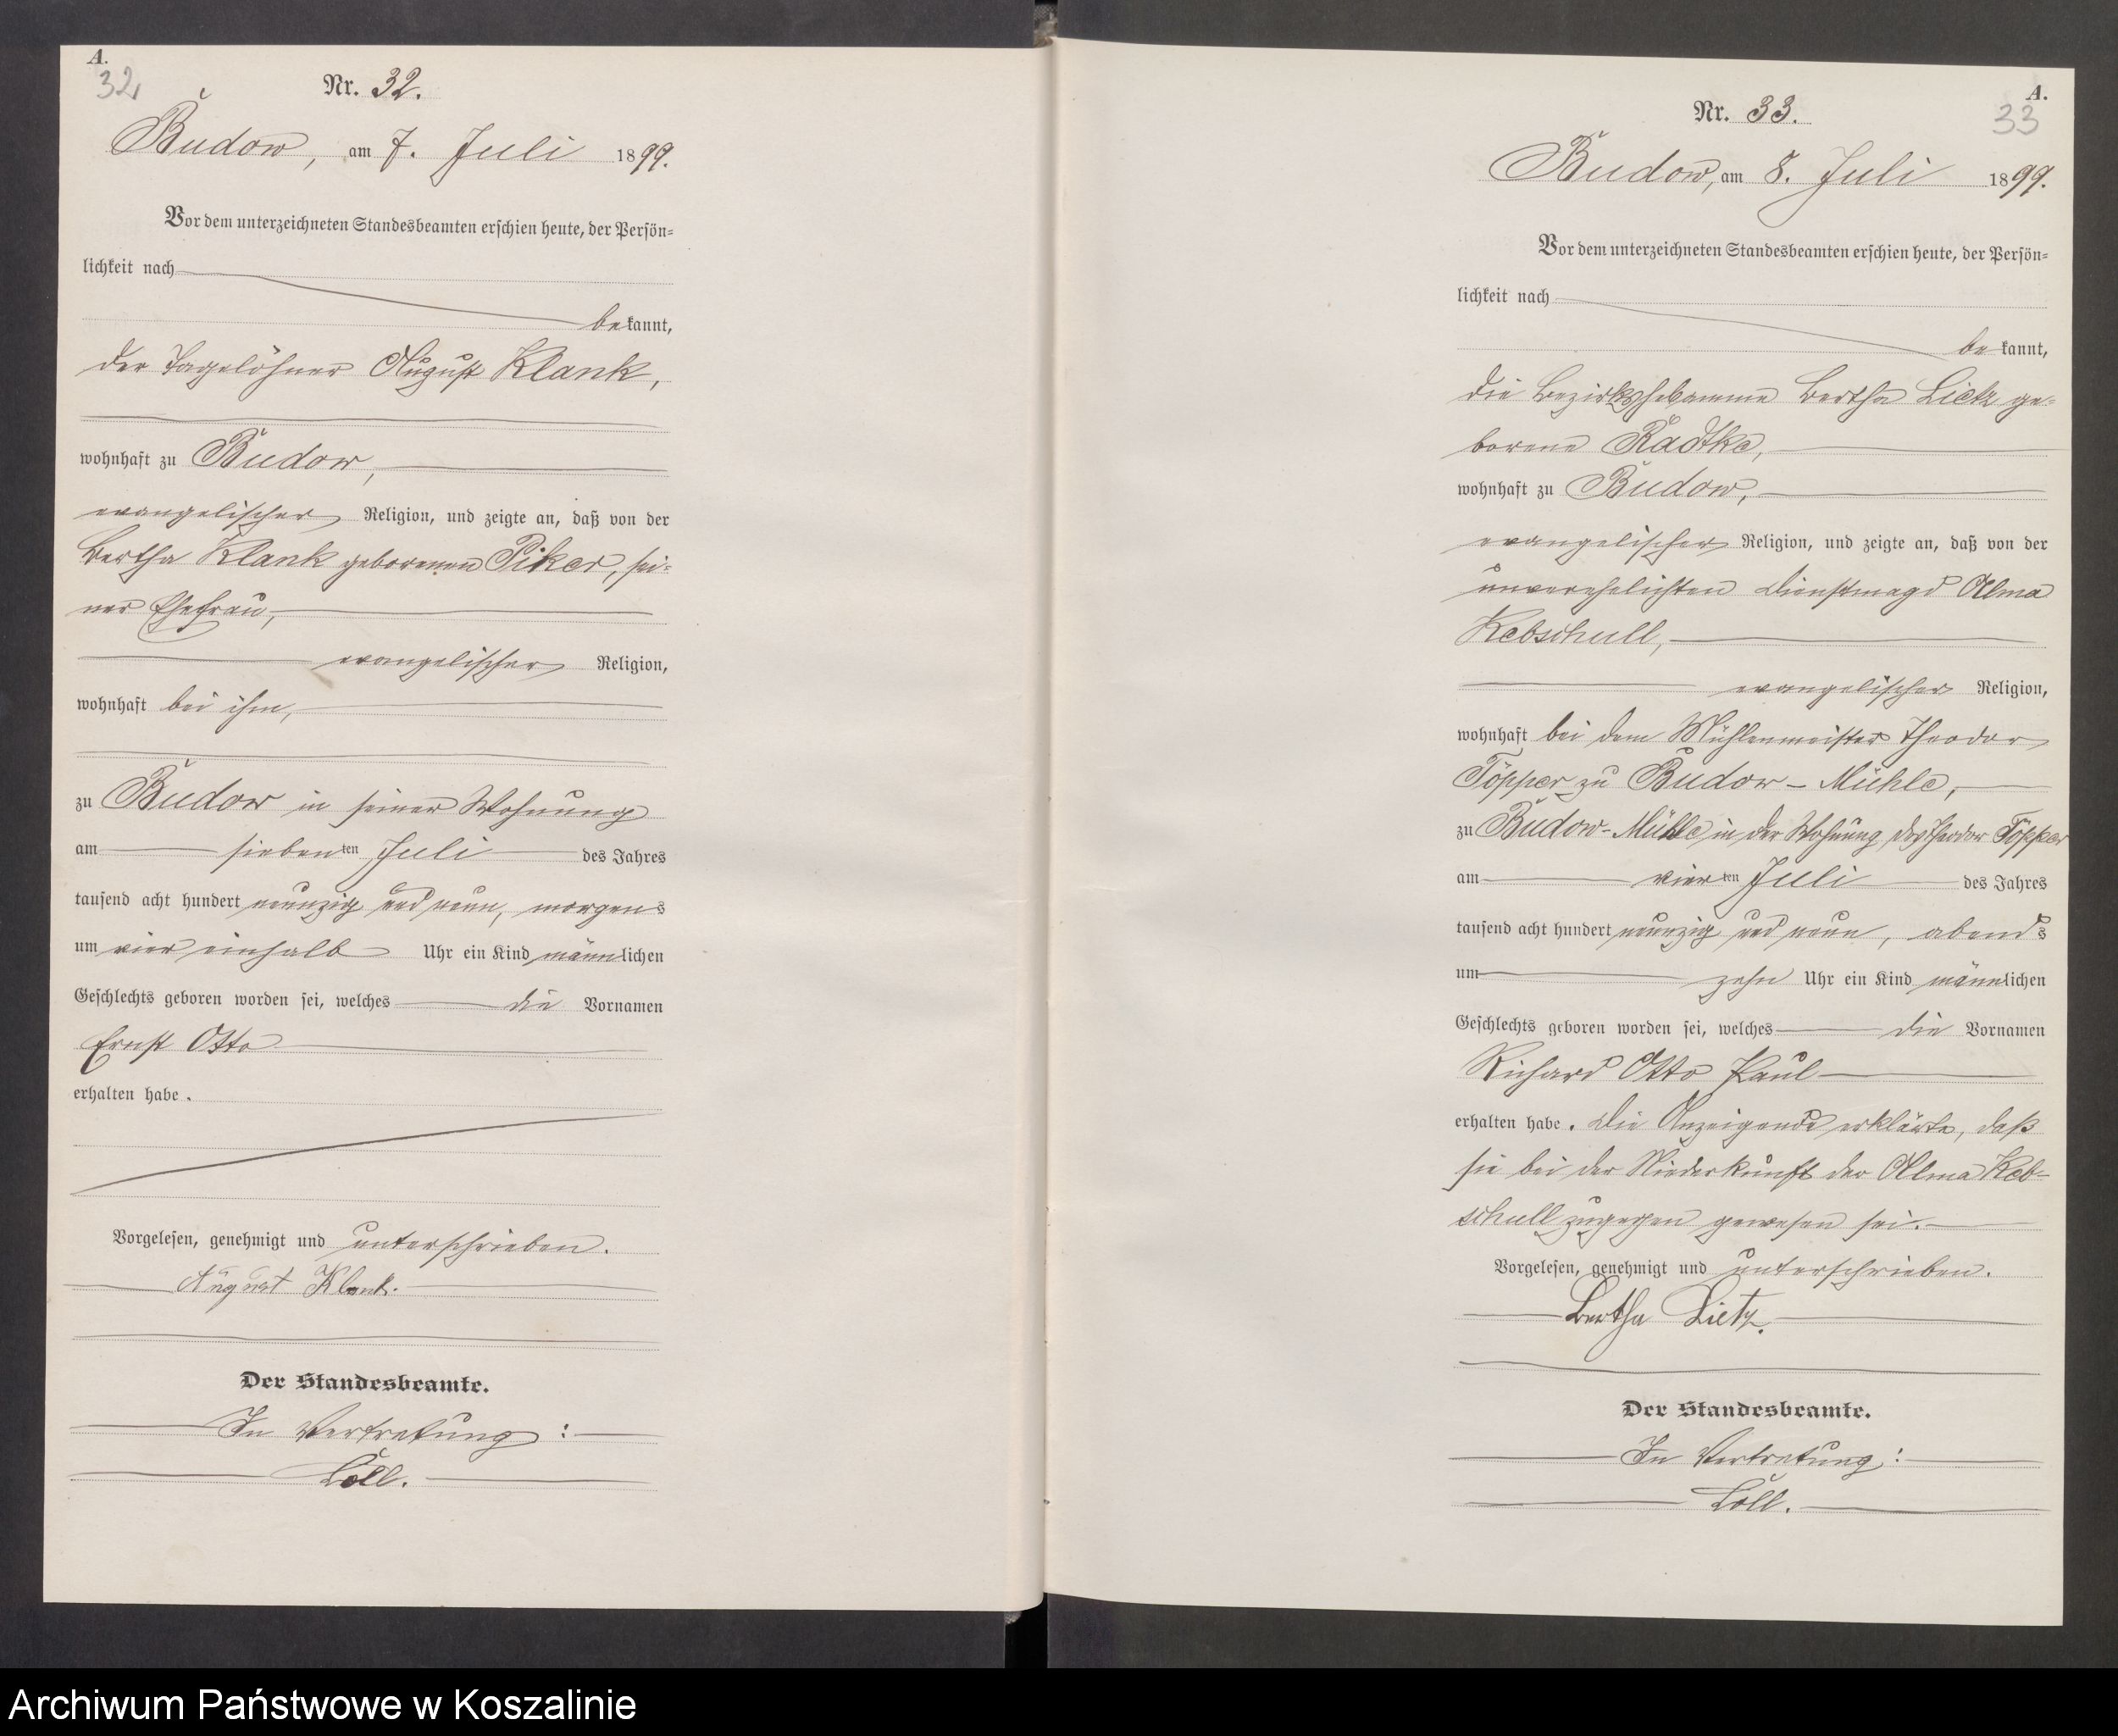 A.
32
Nr. 32.
Budow, am 7. Juli 1899.
Vor dem unterzeichneten Standesbeamten erschien heute, der Persön-
lichkeit nach
bekannt,
der Tagelöhner August Klank,
wohnhaft zu Budow,
evangelischer Religion, und zeigte an, daß von der
Bertha Klank geborenen Piker, sei-
ner Ehefrau,
evangelischer Religion,
wohnhaft bei ihm,
zu Budow in seiner Wohnung
am siebenten Juli des Jahres
tausend acht hundert neunzig und neun, morgens
um vier einhalb Uhr ein Kind männlichen
Geschlechts geboren worden sei, welches die Vornamen
Ernst Otto
erhalten habe.
Vorgelesen, genehmigt und unterschrieben.
August Klank.
Der Standesbeamte.
In Vertretung:
Löll.
A.
33
Nr. 33.
Budow, am 8. Juli 1899.
Vor dem unterzeichneten Standesbeamten erschien heute, der Persön-
lichkeit nach
bekannt,
die Bezirkshebamme Bertha Lietz ge-
borene Radtke,
wohnhaft zu Budow,
evangelischer Religion, und zeigte an, daß von der
unverehelichten Dienstmagd Alma
Kebschull,
evangelischer Religion,
wohnhaft bei dem Mühlenmeister Theodor
Töpper zu Budow-Mühle,
zu Budow-Mühle in der Wohnung des Theodor Töpper
am vierten Juli des Jahres
tausend acht hundert neunzig und neun, abends
um zehn Uhr ein Kind männlichen
Geschlechts geboren worden sei, welches die Vornamen
Richard Otto Paul
erhalten habe. Die Anzeigende erklärte, daß
sie bei der Niederkunft der Alma Keb-
schull zugegen gewesen sei.
Vorgelesen, genehmigt und unterschrieben.
Bertha Lietz.
Der Standesbeamte.
In Vertretung:
Löll.
Archiwum Państwowe w Koszalinie